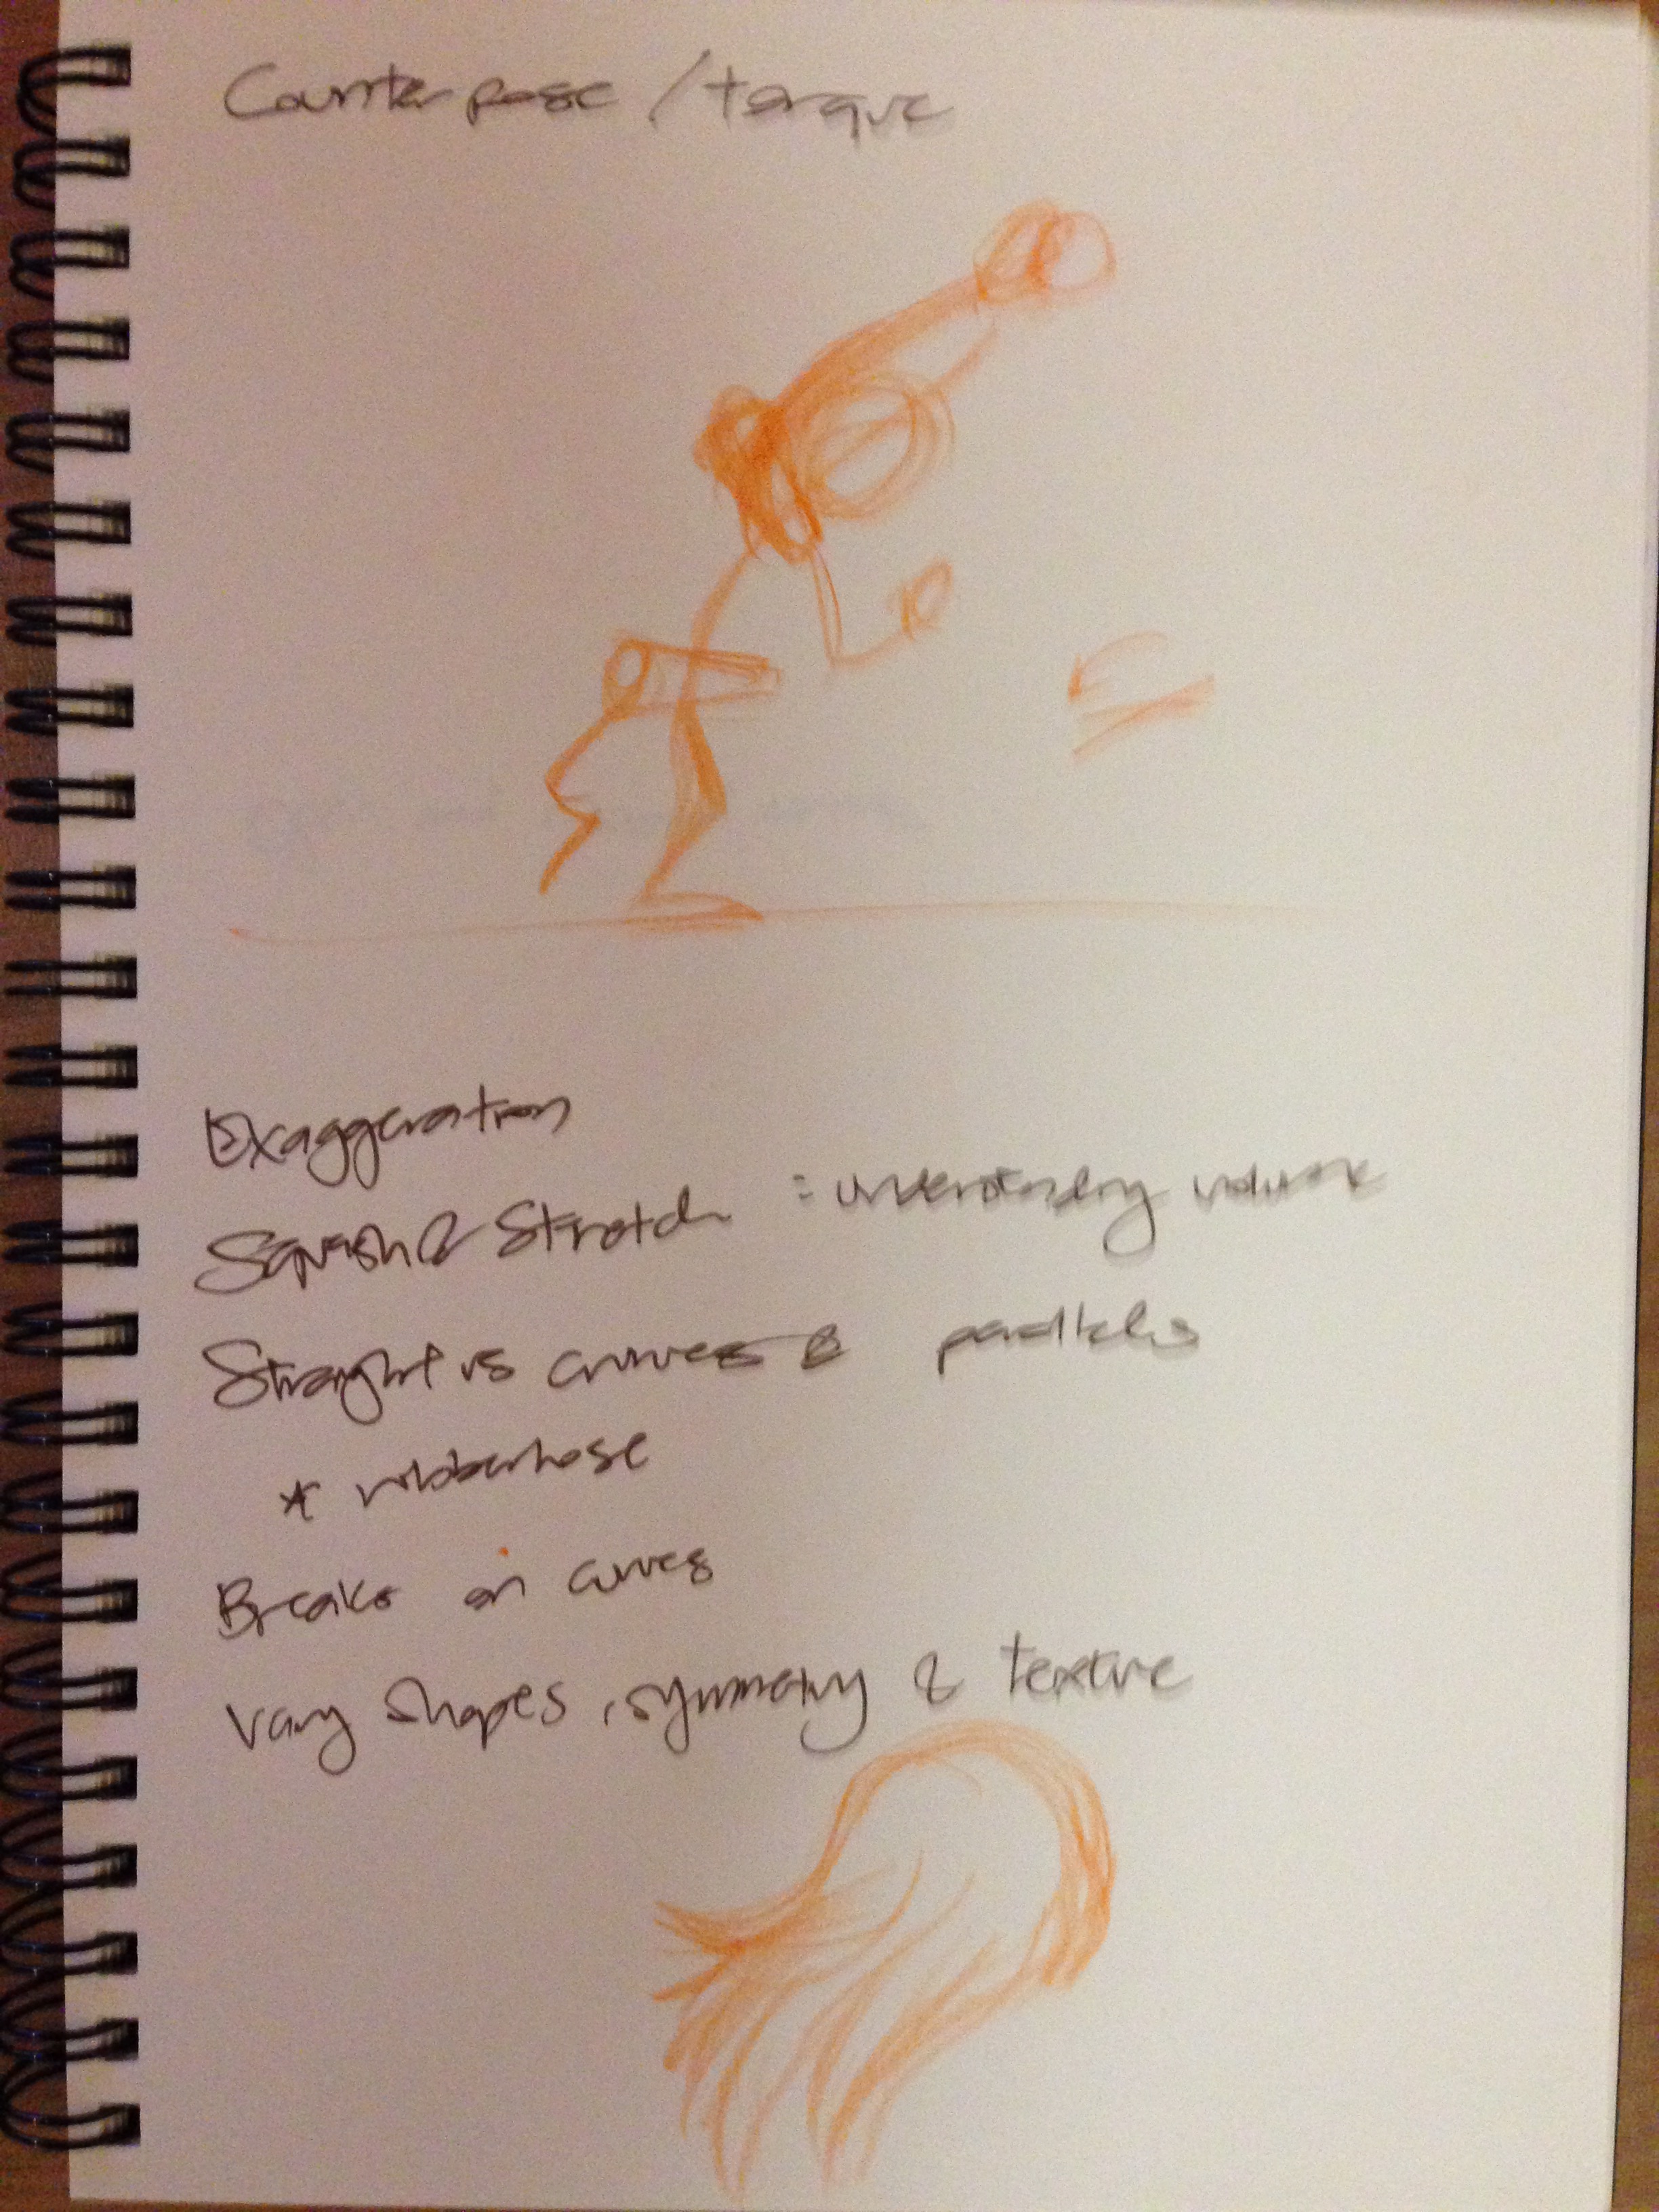 Counterpose / torque
Exaggeration
Squash & Stretch : understanding volume
Straight vs curves & parallels
* rubberhose
Breaks on curves
Vary shapes, symmetry & texture